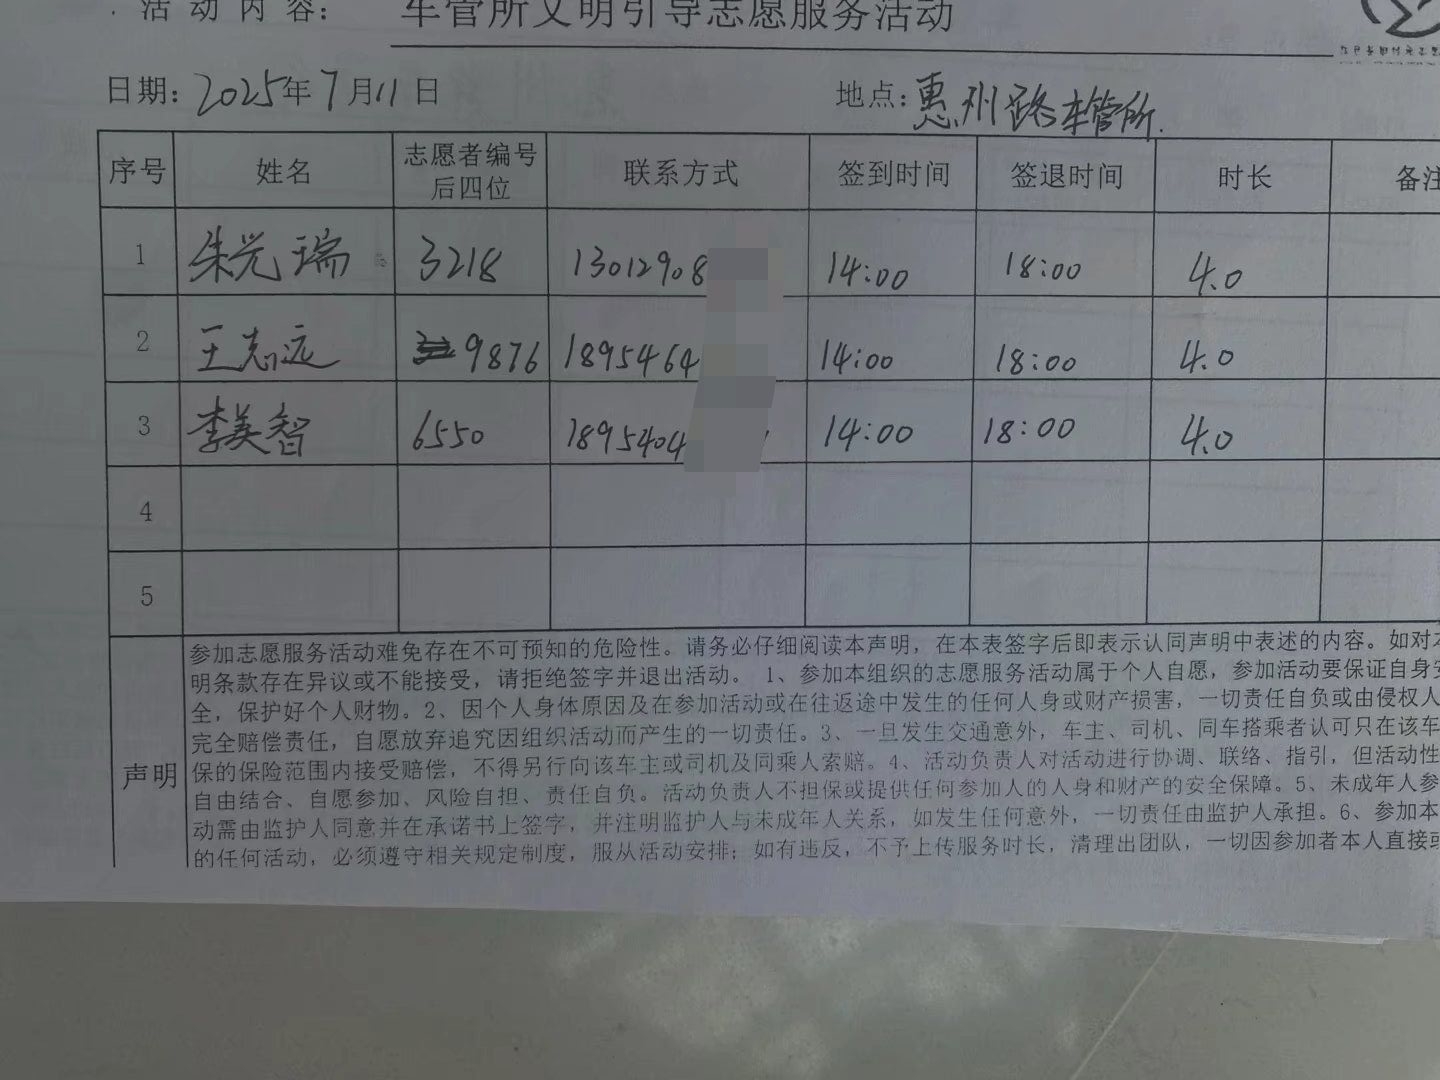 活动内容： 车管所文明引导志愿服务活动
日期：2025年7月11日 地点：惠州路车管所
序号 姓名 志愿者编号后四位 联系方式 签到时间 签退时间 时长 备注
1 朱光瑞 3218 13012908 14:00 18:00 4.0
2 王志远 9876 1895464 14:00 18:00 4.0
3 李美智 6550 1895404 14:00 18:00 4.0
4
5
声明
参加志愿服务活动难免存在不可预知的危险性。请务必仔细阅读本声明，在本表签字后即表示认同声明中表述的内容。如对本
明条款存在异议或不能接受，请拒绝签字并退出活动。1、参加本组织的志愿服务活动属于个人自愿，参加活动要保证自身安
全，保护好个人财物。2、因个人身体原因及在参加活动或在往返途中发生的任何人身或财产损害，一切责任自负或由侵权人
完全赔偿责任，自愿放弃追究因组织活动而产生的一切责任。3、一旦发生交通意外，车主、司机、同车搭乘者认可只在该车
保的保险范围内接受赔偿，不得另行向该车主或司机及同乘人索赔。4、活动负责人对活动进行协调、联络、指引，但活动性
自由结合、自愿参加、风险自担、责任自负。活动负责人不担保或提供任何参加人的人身和财产的安全保障。5、未成年人参
动需由监护人同意并在承诺书上签字，并注明监护人与未成年人关系，如发生任何意外，一切责任由监护人承担。6、参加本
的任何活动，必须遵守相关规定制度，服从活动安排；如有违反，不予上传服务时长，清理出团队，一切因参加者本人直接或